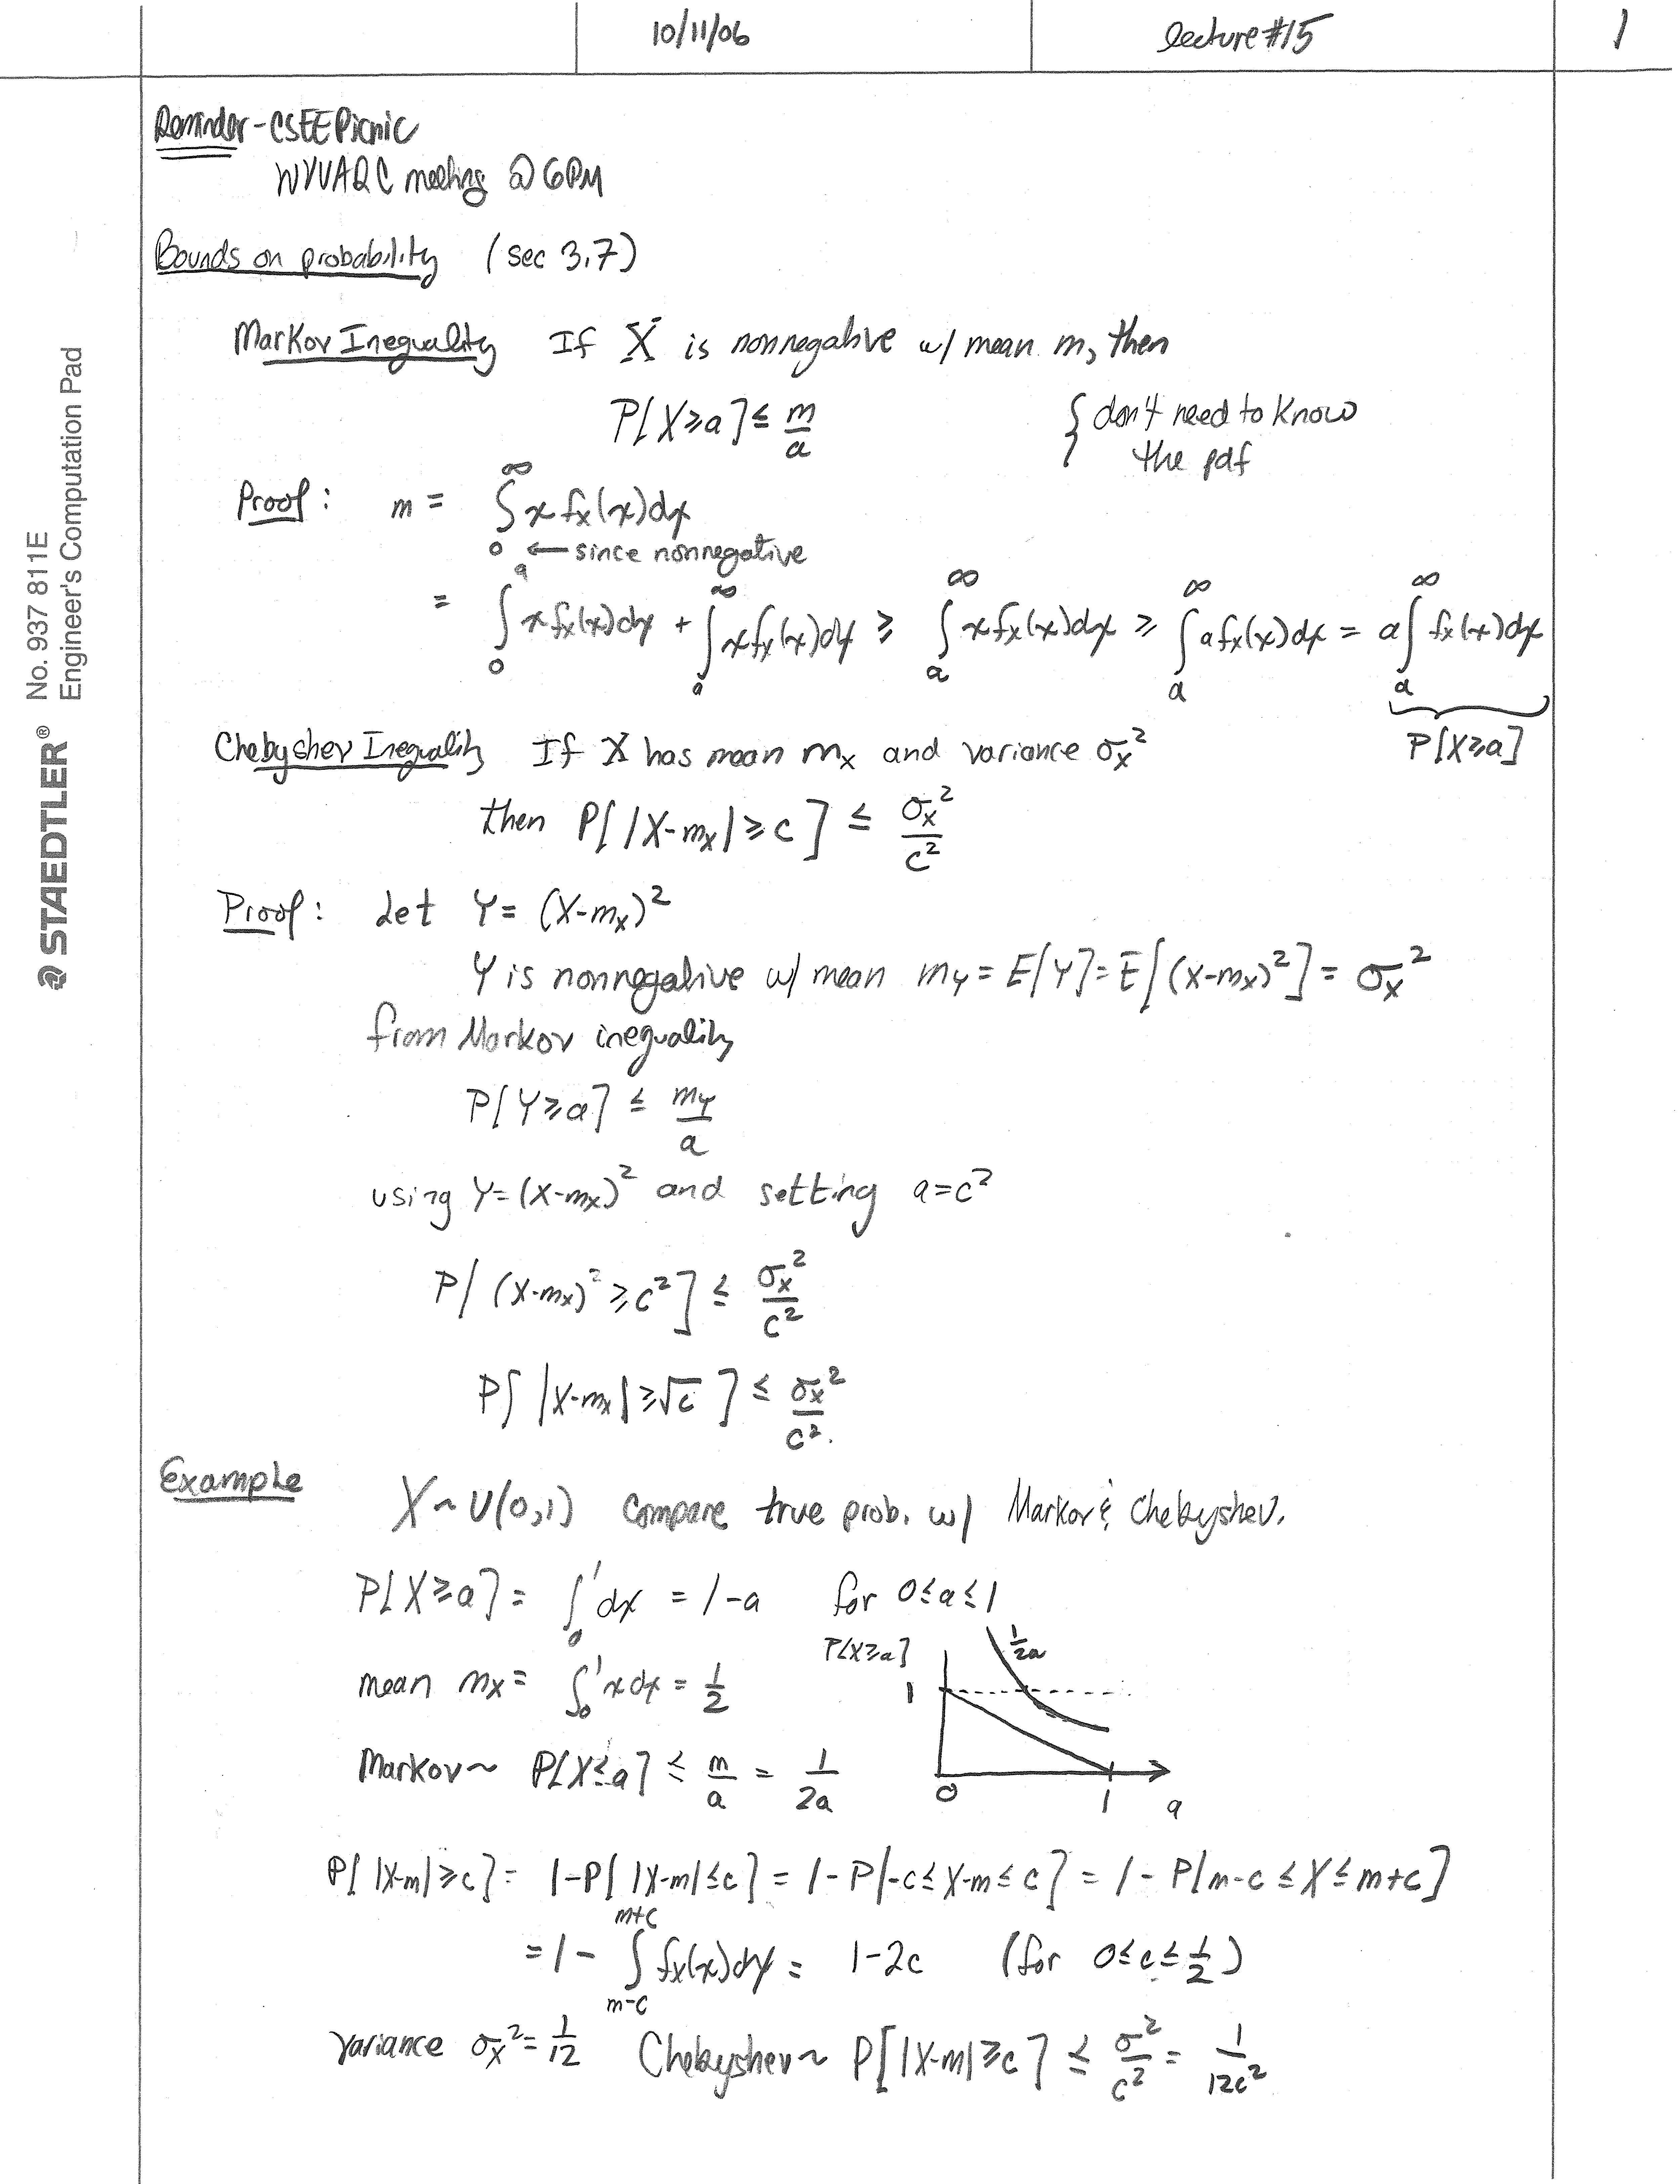 10/11/06 lecture #15 1
Reminder - CSEE Picnic
WVUARC meeting @ 6PM
Bounds on probability (sec 3.7)
Markov Inequality If X is nonnegative w/ mean m, then
P[X≥a] ≤ m/a { don't need to know
the pdf
Proof: m = ∫_0^∞ x fx(x)dx
← since nonnegative
= ∫_0^a x fx(x)dx + ∫_a^∞ x fx(x)dx ≥ ∫_a^∞ x fx(x)dx ≥ ∫_a^∞ a fx(x)dx = a ∫_a^∞ fx(x)dx
P[X≥a]
Chebyshev Inequality If X has mean mx and variance σx²
then P[ |X-mx| ≥ c ] ≤ σx²/c²
Proof: Let Y = (X-mx)²
Y is nonnegative w/ mean mY = E[Y] = E[(X-mx)²] = σx²
from Markov inequality
P[Y≥a] ≤ mY/a
using Y=(X-mx)² and setting a=c²
P[ (X-mx)² ≥ c² ] ≤ σx²/c²
P[ |X-mx| ≥ √c ] ≤ σx²/c².
Example X ~ U(0,1) Compare true prob. w/ Markov & Chebyshev.
P[X≥a] = ∫_a^1 dx = 1-a for 0≤a≤1
P[X≥a] 1/2a
mean mx = ∫_0^1 x dx = 1/2 1
Markov ~ P[X≤a] ≤ m/a = 1/2a
0 1 a
P[ |X-m| ≥ c] = 1-P[ |X-m| ≤ c] = 1-P[-c ≤ X-m ≤ c] = 1 - P[m-c ≤ X ≤ m+c]
= 1 - ∫_{m-c}^{m+c} fx(x)dx = 1-2c (for 0≤c≤1/2)
variance σx² = 1/12 Chebyshev ~ P[|X-m| ≥ c] ≤ σ²/c² = 1/12c²
STAEDTLER® No. 937 811E
Engineer's Computation Pad